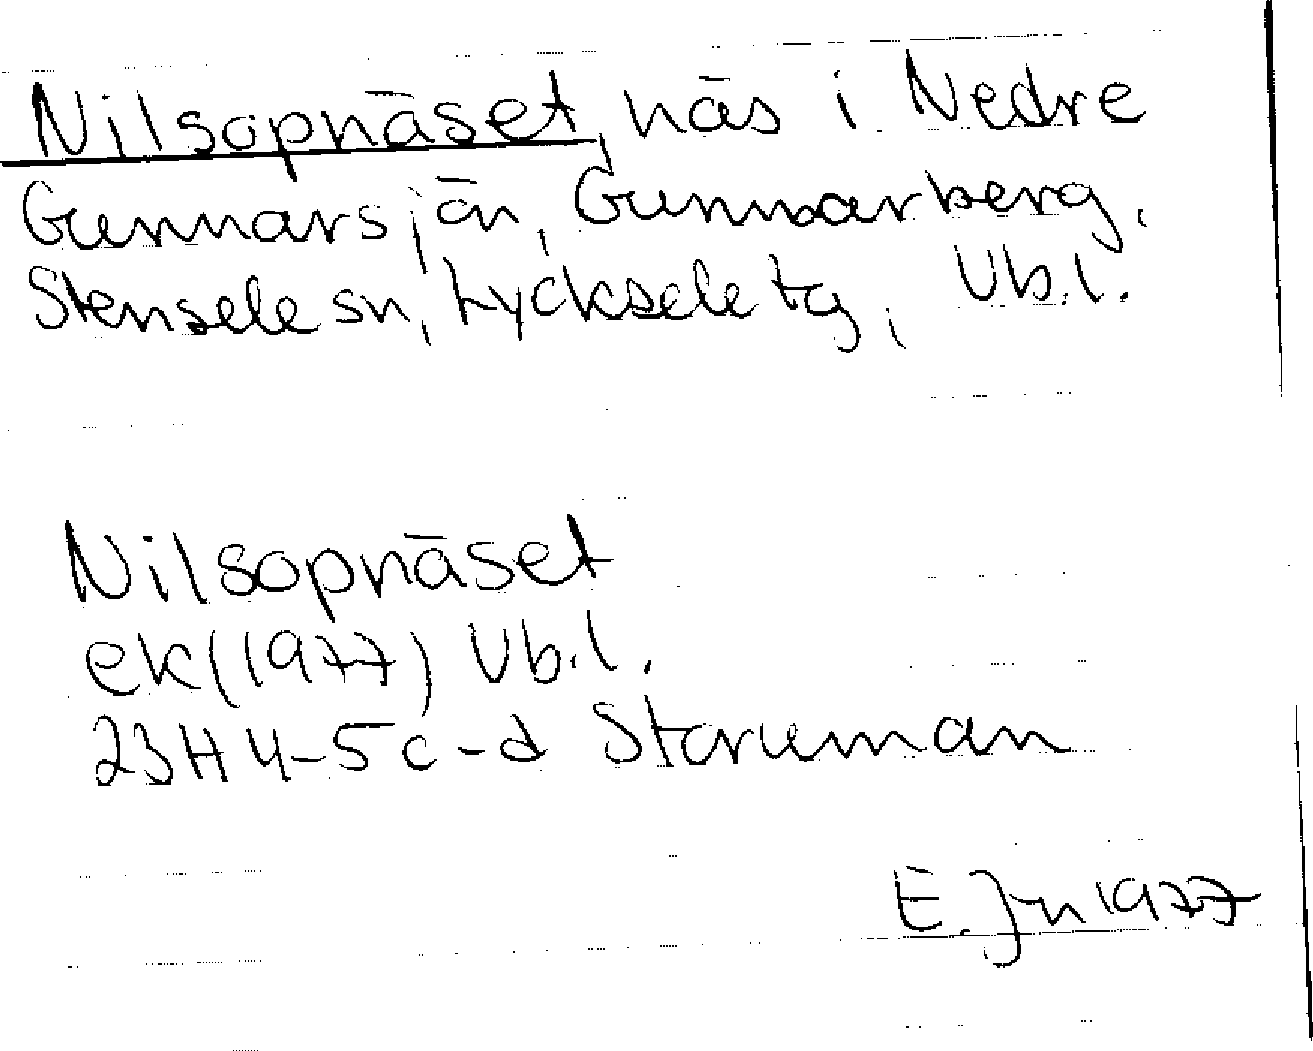 Nilsopnäset, näs i Nedre
Gunnarsjön, Gunnarberg,
Stensele sn, Lycksele tg, Vb.l.
Nilsopnäset
ek(1977) Vb.l.
23H 4-5 c-d Storuman
E. Jn 1977